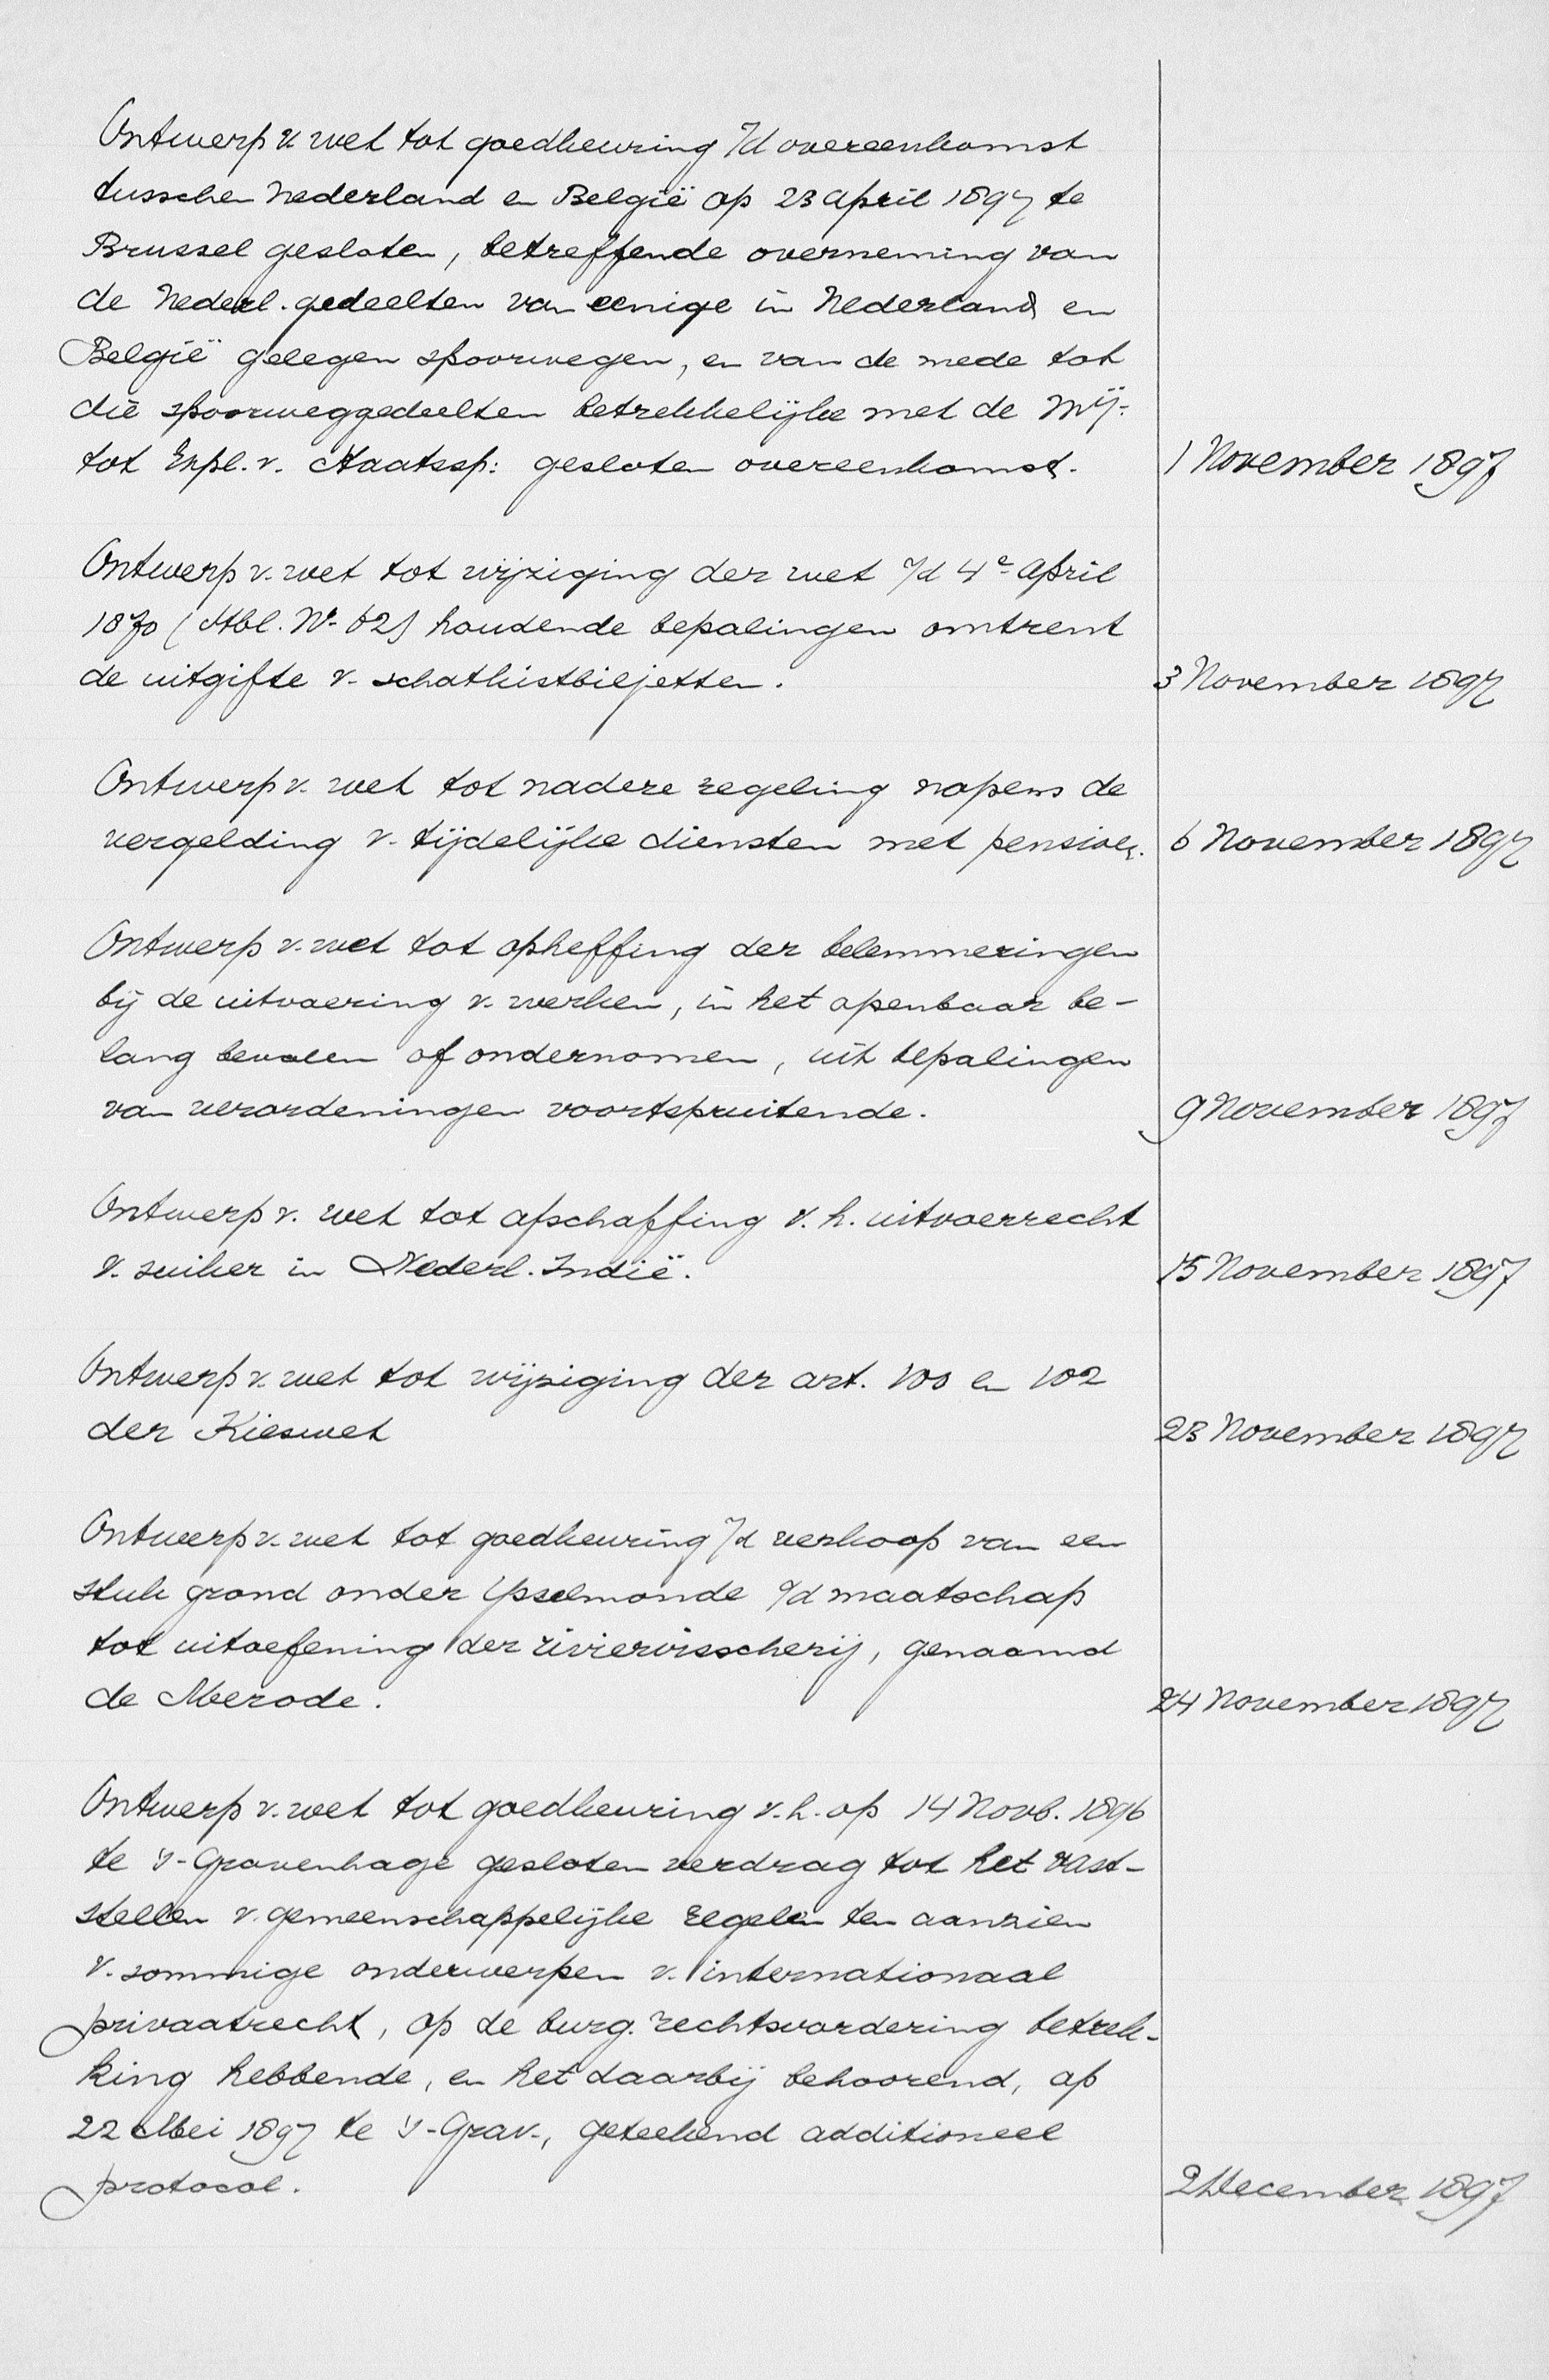 Ontwerp v. wet tot goedkeuring v/d overeenkomst
tusschen Nederland en België op 23 April 1897 te
Brussel gesloten, betreffende overneming van
de Nederl. gedeelten van eenige in Nederland en
België gelegen spoorwegen, en van de mede tot
die spoorweggedeelten betrekkelijke met de Mij.
tot Expl. v. Staatssp: gesloten overeenkomst. 1 November 1897
Ontwerp v. wet tot wijziging der wet v/d 4e April
1870 (Stbl. No. 62) houdende bepalingen omtrent
de uitgifte v. schatkistbiljetten. 3 November 1897
Ontwerp v. wet tot nadere regeling nopens de
vergelding v. tijdelijke diensten met pensioen. 6 November 1897
Ontwerp v. wet tot opheffing der belemmeringen
bij de uitvoering v. werken, in het openbaar be-
lang bevolen of ondernomen, uit bepalingen
van verordeningen voortspruitende. 9 November 1897
Ontwerp v. wet tot afschaffing v. h. uitvoerrecht
v. suiker in Nederl. Indië. 15 November 1897
Ontwerp v. wet tot wijziging der art. 100 en 102
der Kieswet 23 November 1897
Ontwerp v. wet tot goedkeuring v/d verkoop van een
stuk grond onder IJsselmonde a/d maatschap
tot uitoefening der riviervisscherij, genaamd
de Merode. 24 November 1897
Ontwerp v. wet tot goedkeuring v. h. op 14 Novb. 1896
te 's-Gravenhage gesloten verdrag tot het vast-
stellen v. gemeenschappelijke regelen ten aanzien
v. sommige onderwerpen v. internationaal
privaatrecht, op de burg. rechtsvordering betrek-
king hebbende, en het daarbij behoorend, op
22 Mei 1897 te 's-Grav., geteekend additioneel
protocol. 2 December 1897